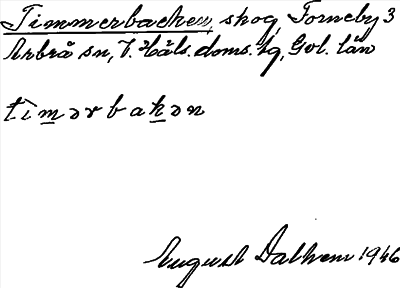 Timmerbacken, skog, Forneby 3
Arbrå sn, V. Häls. doms. tg, Gvl. län
timərbakən
August Dalhem 1946